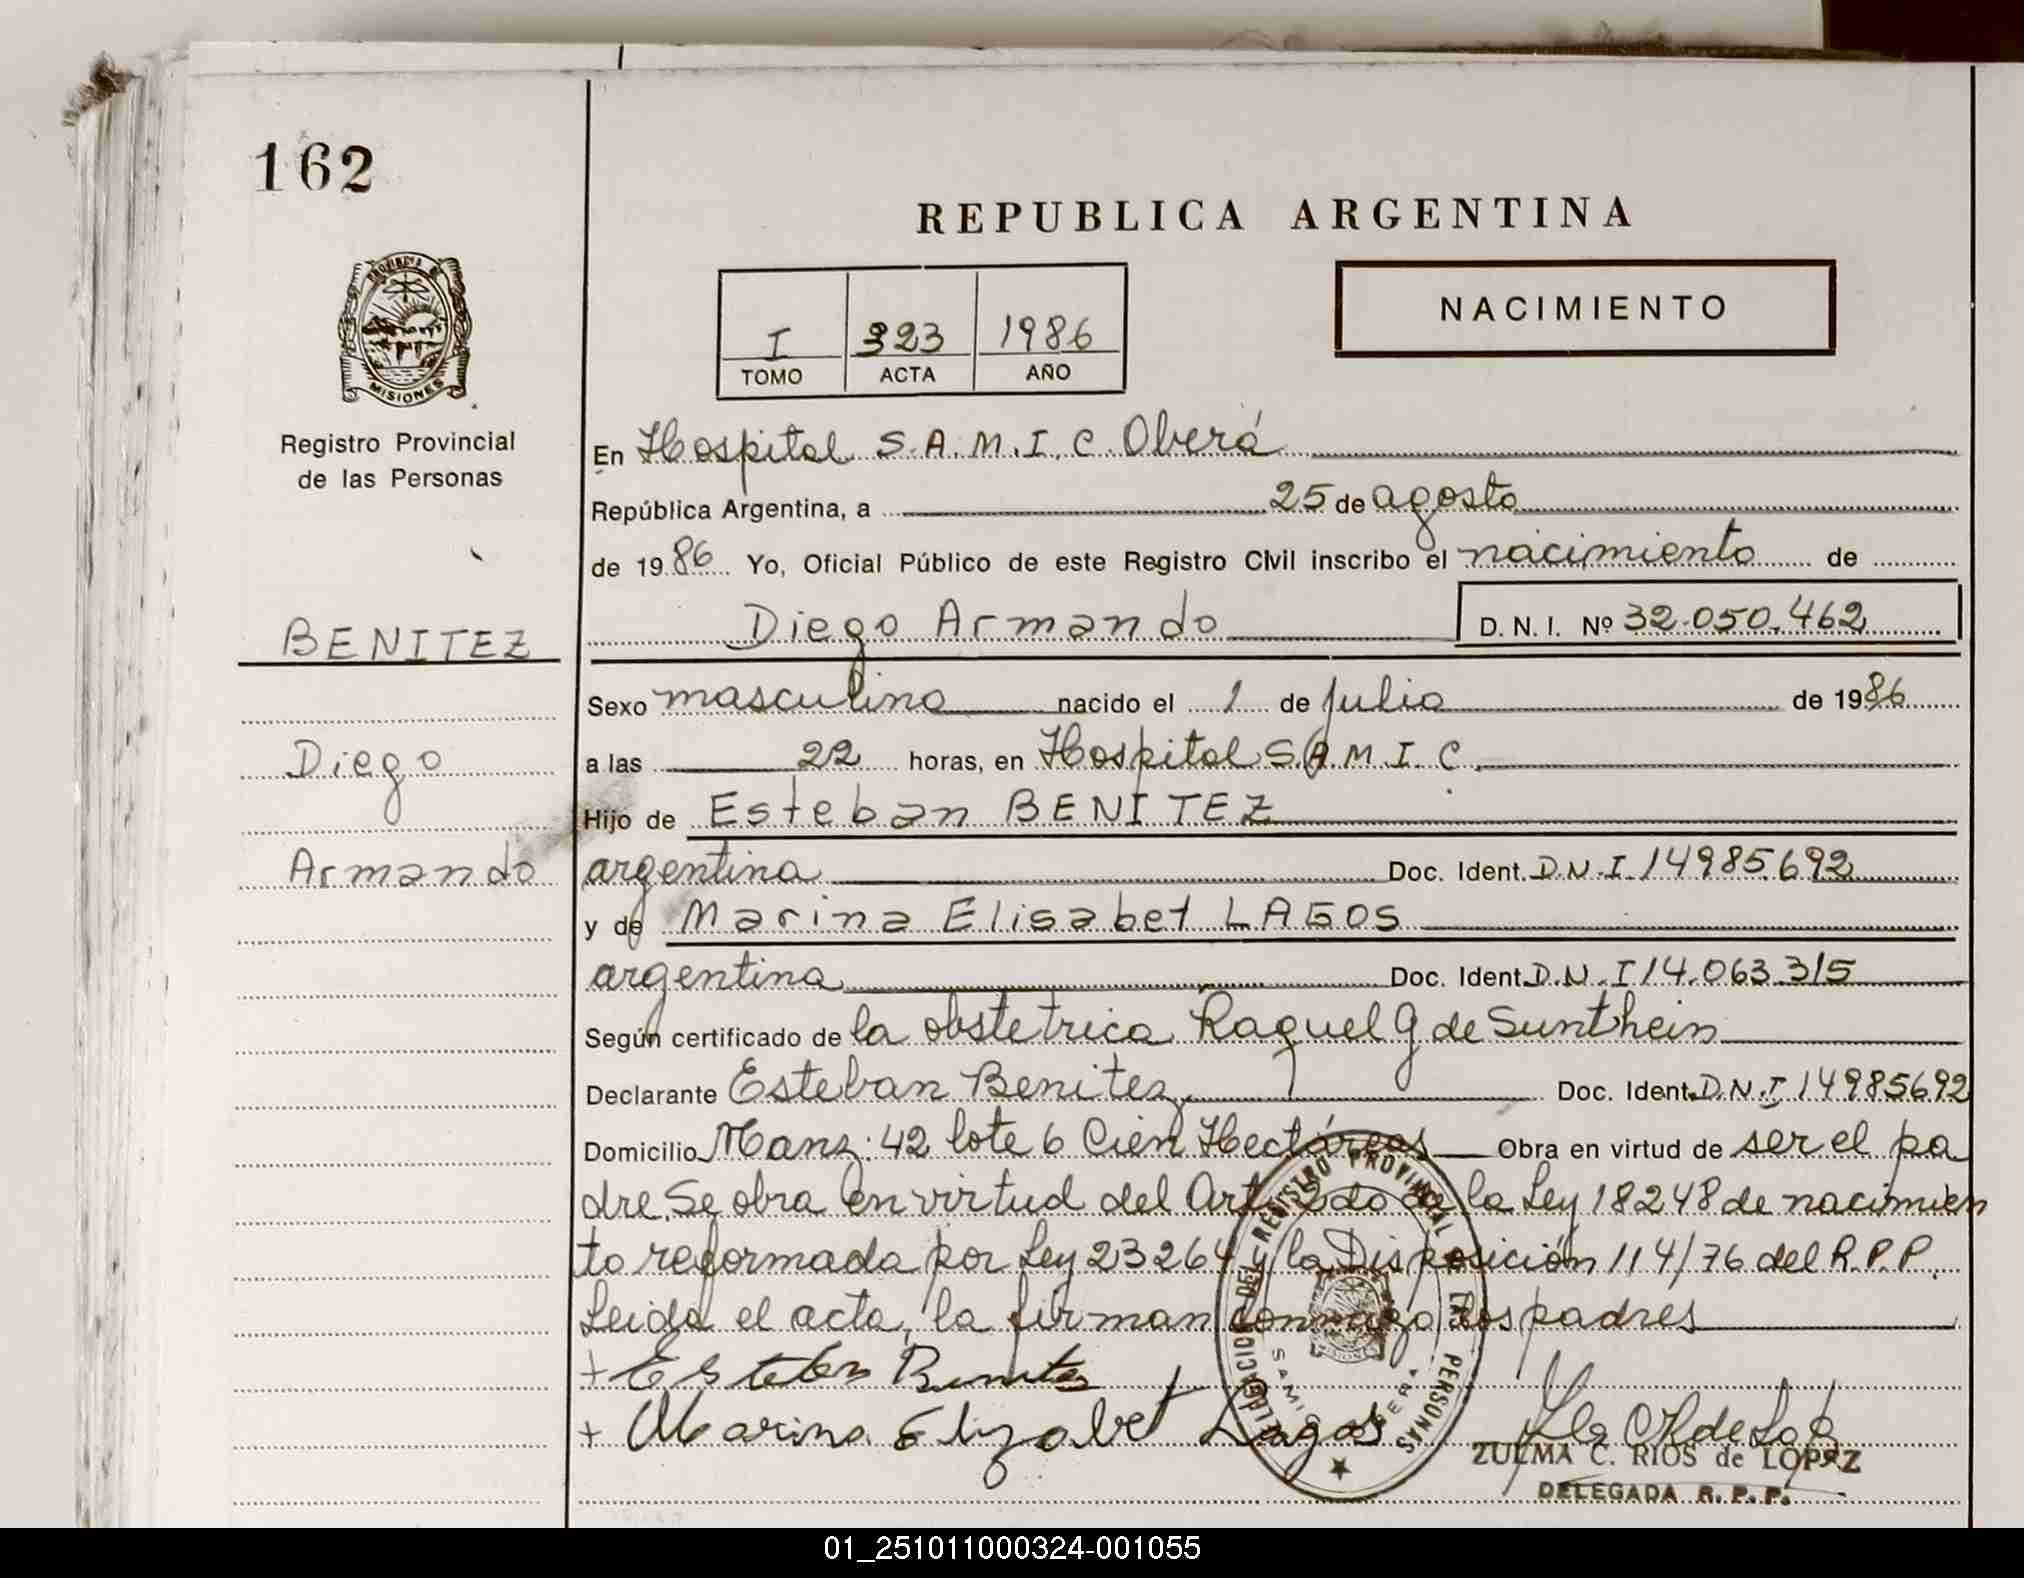 162
REPUBLICA ARGENTINA
NACIMIENTO
I 323 1986
TOMO ACTA AÑO
PROVINCIA DE
MISIONES
Registro Provincial
de las Personas
En Hospital S.A.M.I.C. Oberá
República Argentina, a 25 de agosto
de 1986 Yo, Oficial Público de este Registro Civil inscribo el nacimiento de
BENITEZ
Diego Armando D. N. I. Nº 32.050.462
Sexo masculino nacido el 1 de julio de 1986
Diego
a las 22 horas, en Hospital S.A.M.I.C.
Hijo de Esteban BENITEZ
Armando
argentina Doc. Ident. D.N.I. 14985.692
y de Marina Elisabet LAGOS
argentina Doc. Ident. D.N.I 14.063.315
Según certificado de la obstetrica Raquel G de Sunthein
Declarante Esteban Benitez Doc. Ident. D.N.I 14985692
Domicilio Manz: 42 lote 6 Cien Hectáreas Obra en virtud de ser el pa
dre. Se obra en virtud del Art 2do de la Ley 18248 de nacimien
to reformada por Ley 23264 y la Disposición 114/76 del R.P.P.
Leida el acta, la firman conmigo los padres
+ Esteban Benitez
+ Marina Elizabet Lagos
DELEGACION DEL REGISTRO PROVINCIAL DE LAS PERSONAS
SAMIC OBERA
ZULMA C. RIOS de LOPEZ
DELEGADA R. P. P.
01_251011000324-001055